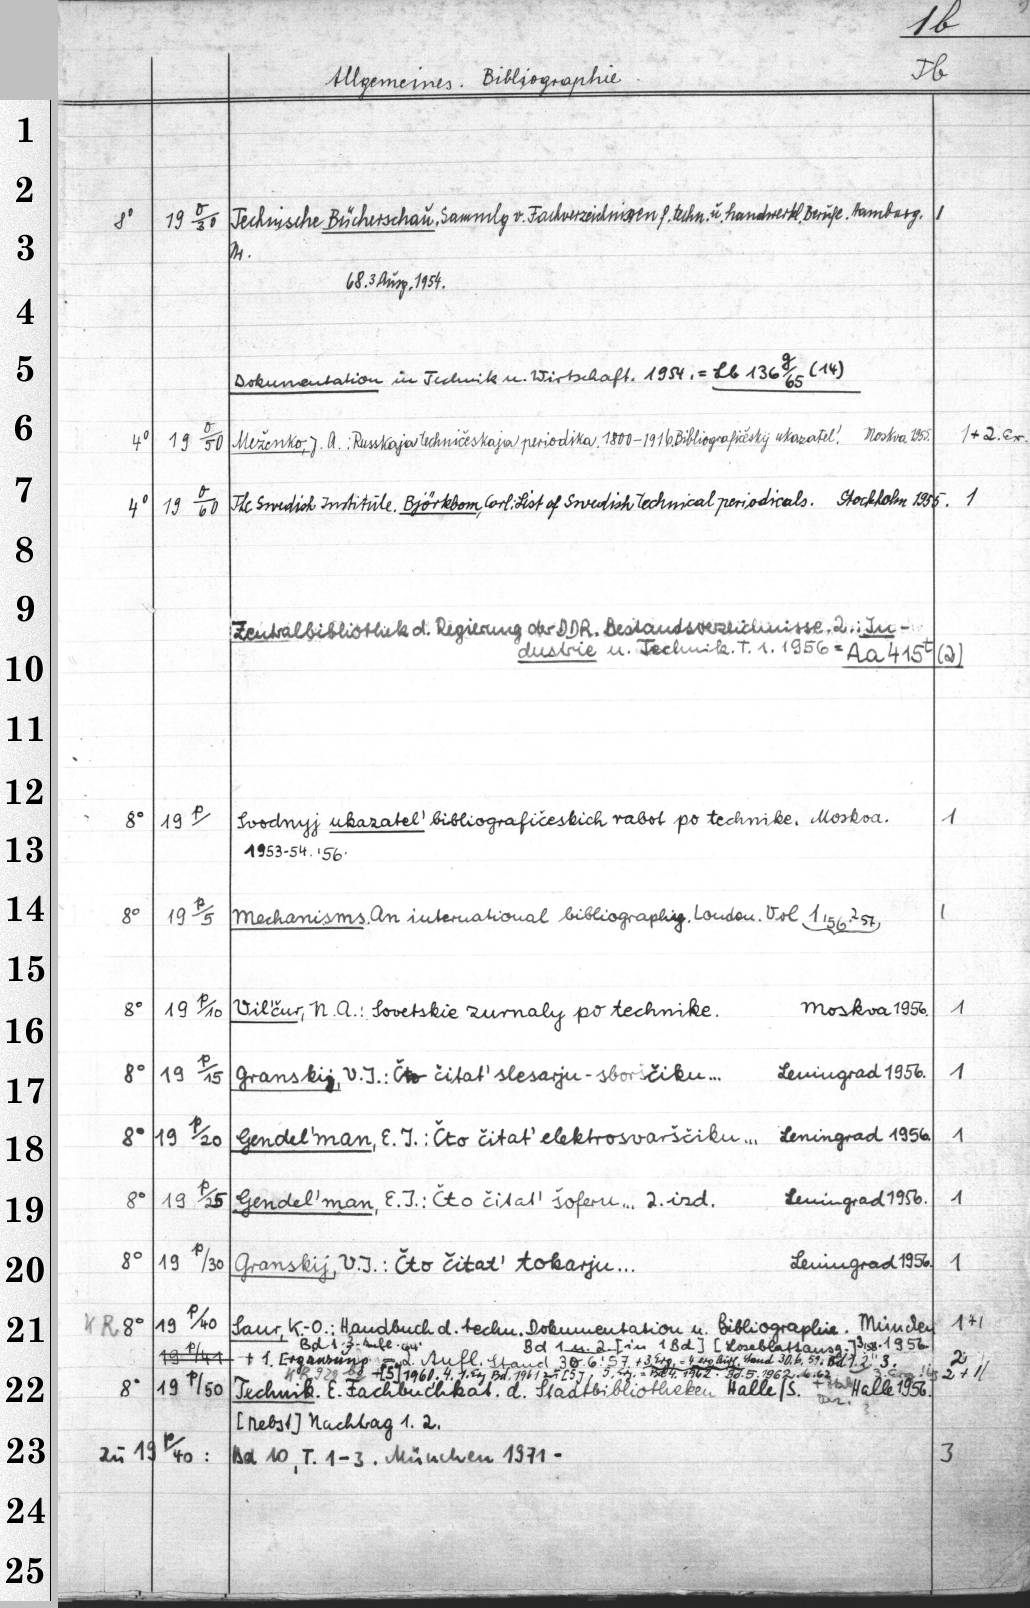 1b
Tb
Allgemeines. Bibliographie
1
2
8° 19 σ/30 Technische Bücherschau. Sammlg v. Fachverzeichnissen f. techn. u. handwerkl. Berufe. Hamburg. 1
3
Nr.
68.3 Ausg. 1954.
4
5
Dokumentation in Technik u. Wirtschaft. 1954. = Lb 136 g/65 (14)
6
4° 19 σ/50 Meženko, J. A.: Russkaja techničeskaja periodika. 1800-1916. Bibliografičeskij ukazatel'. Moskva 1955. 1+2. Ex.
7
4° 19 σ/60 The Swedish Institute. Björkbom, Carl: List of Swedish technical periodicals. Stockholm 1955. 1
8
9
Zentralbibliothek d. Regierung der DDR. Bestandsverzeichnisse. 2.: In-
10
dustrie u. Technik. T. 1. 1956 = Aa 415t (2)
11
12
8° 19 p/ Svodnyj ukazatel' bibliografičeskich rabot po technike. Moskva. 1
13
1953-54. '56.
14
8° 19 p/5 Mechanisms. An international bibliography. London. Vol 1,'56. 2'57, 1
15
8° 19 p/10 Vil'čur, N. A.: Sovetskie zurnaly po technike. Moskva 1956. 1
16
8° 19 p/15 Granskij, V. I.: Čto čitat' slesarju-sborščiku... Leningrad 1956. 1
17
8° 19 p/20 Gendel'man, E. I.: Čto čitat' elektrosvarščiku... Leningrad 1956. 1
18
8° 19 p/25 Gendel'man, E. I.: Čto čitat' šoferu... 2. izd. Leningrad 1956. 1
19
8° 19 p/30 Granskij, V. I.: Čto čitat' tokarju... Leningrad 1956. 1
20
21
HR 8° 19 p/40 Saur, K.-O.: Handbuch d. techn. Dokumentation u. Bibliographie. München 1+1
Bd 1. 3. Aufl. Bd 1 u. 2 [in 1 Bd] [Loseblattausg.] 1956
19 p/41 + 1. Ergänzung = 2. Aufl. Stand 30.6.'57. + 3. Erg. = 4. Stand 30.6.59. Bd 1. 2. 3. 2
[5] 1960. 1961 1962. Bd. 5. 1962. 2 + 1
22
8° 19 p/50 Technik. E. Fachbuchkat. d. Stadtbibliotheken Halle/S. Halle 1956.
[Nebst] Nachtrag 1. 2.
23
zu 19 p/40: Bd 10, T. 1-3. München 1971- 3
24
25